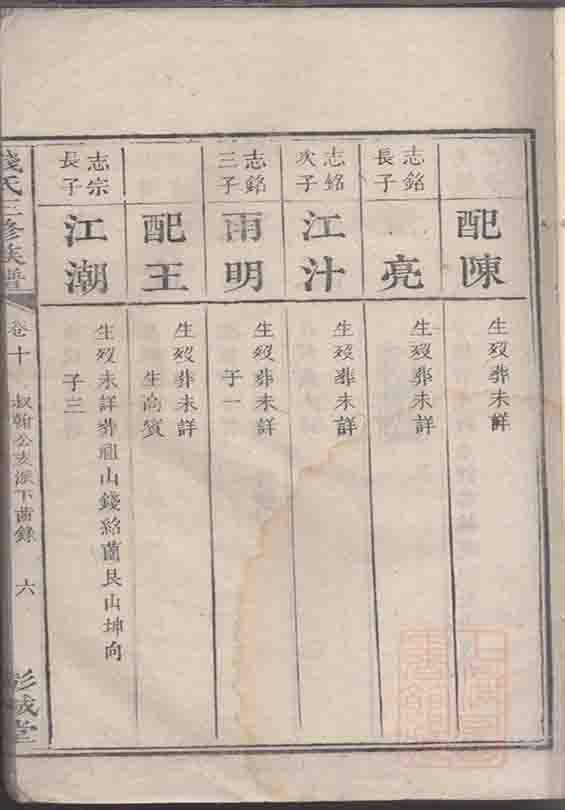 配陳
生歿未詳
志銘
長子
亮
生歿葬未詳
志銘
次子
江汁
生歿葬未詳
志銘
三子
南明
生歿葬未詳
子一
配王
生歿葬未詳
生高賓
志宗
長子
江潮
生歿未詳葬祖山錢窩蘭艮山坤向
子三
錢氏三修族譜
卷十
叔翰公支派下齒錄
六
彭城堂